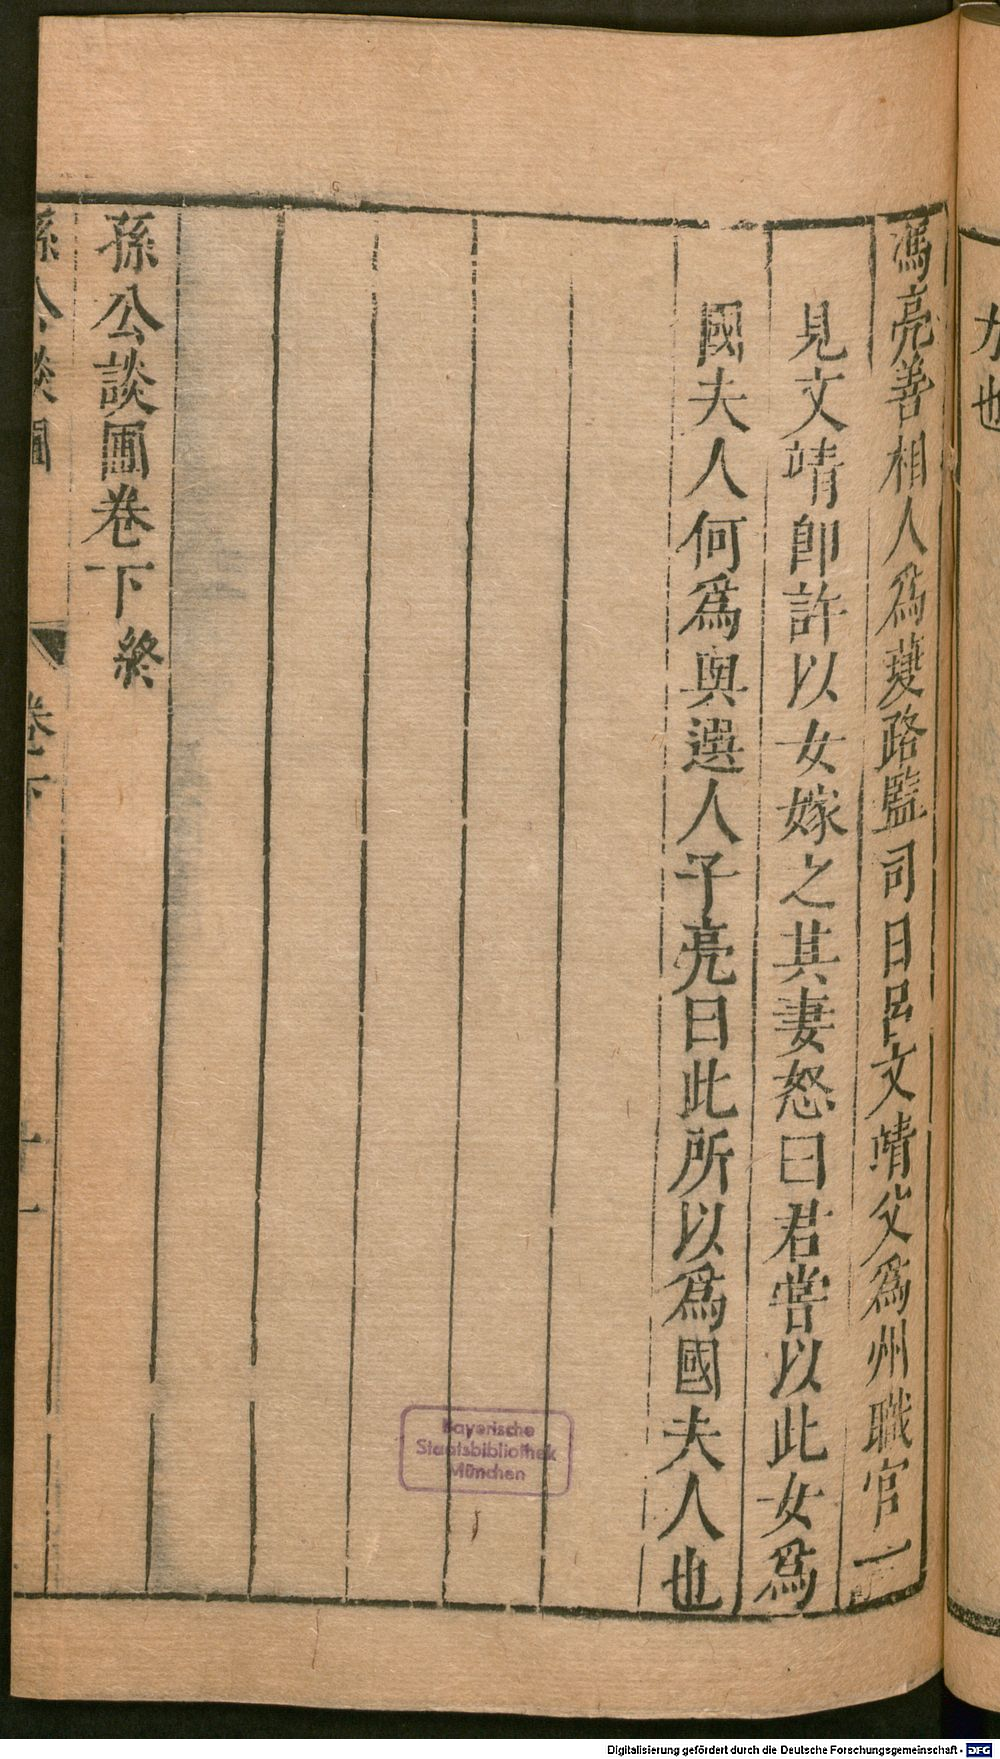 力也
馮亮善相人爲䕫路監司日呂文靖父爲州職官一
見文靖卽許以女嫁之其妻怒曰君嘗以此女爲
國夫人何爲與選人子亮曰此所以爲國夫人也
孫公談圃卷下終
孫公談圃
卷下
十一
Bayerische
Staatsbibliothek
München
Digitalisierung gefördert durch die Deutsche Forschungsgemeinschaft - DFG